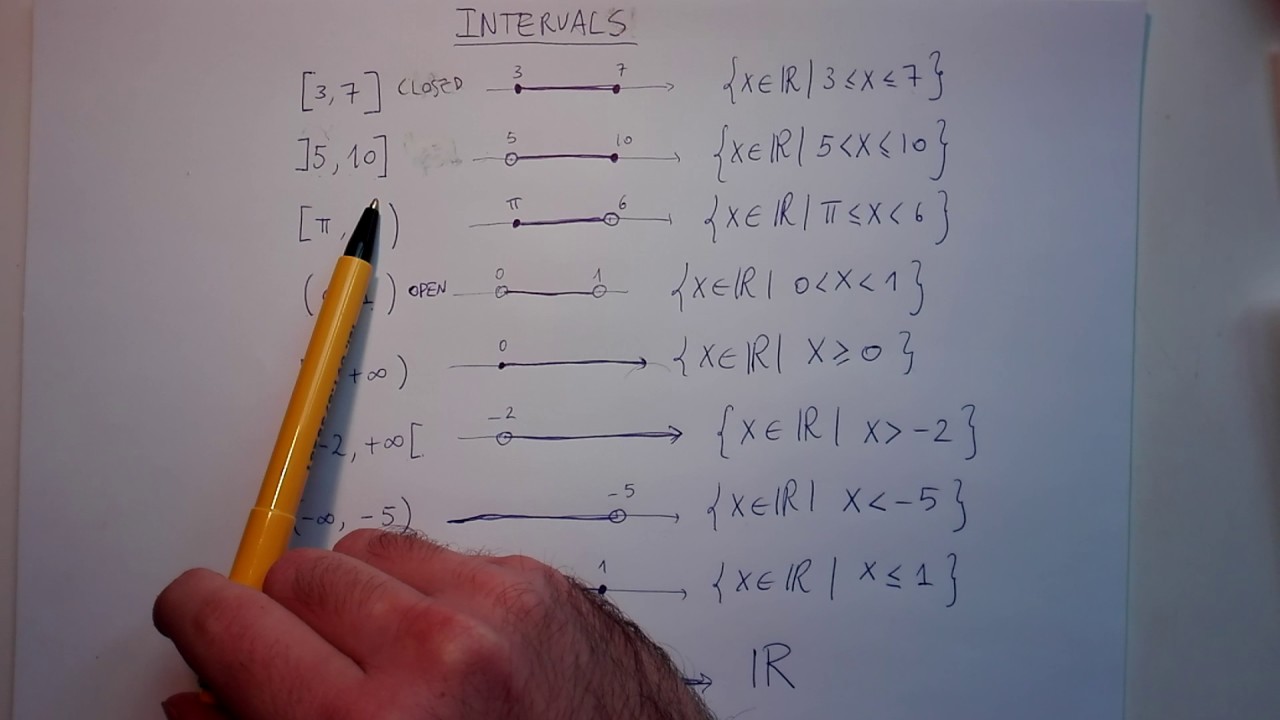 INTERVALS
[3,7] CLOSED 3 7 {x∈ℝ | 3≤x≤7}
]5,10] 5 10 {x∈ℝ | 5<x≤10}
[π, ) π 6 {x∈ℝ | π≤x<6}
( ) OPEN 0 1 {x∈ℝ | 0<x<1}
+∞) 0 {x∈ℝ | x≥0}
-2,+∞[ -2 {x∈ℝ | x>-2}
-∞, -5) -5 {x∈ℝ | x<-5}
1 {x∈ℝ | x≤1}
ℝ